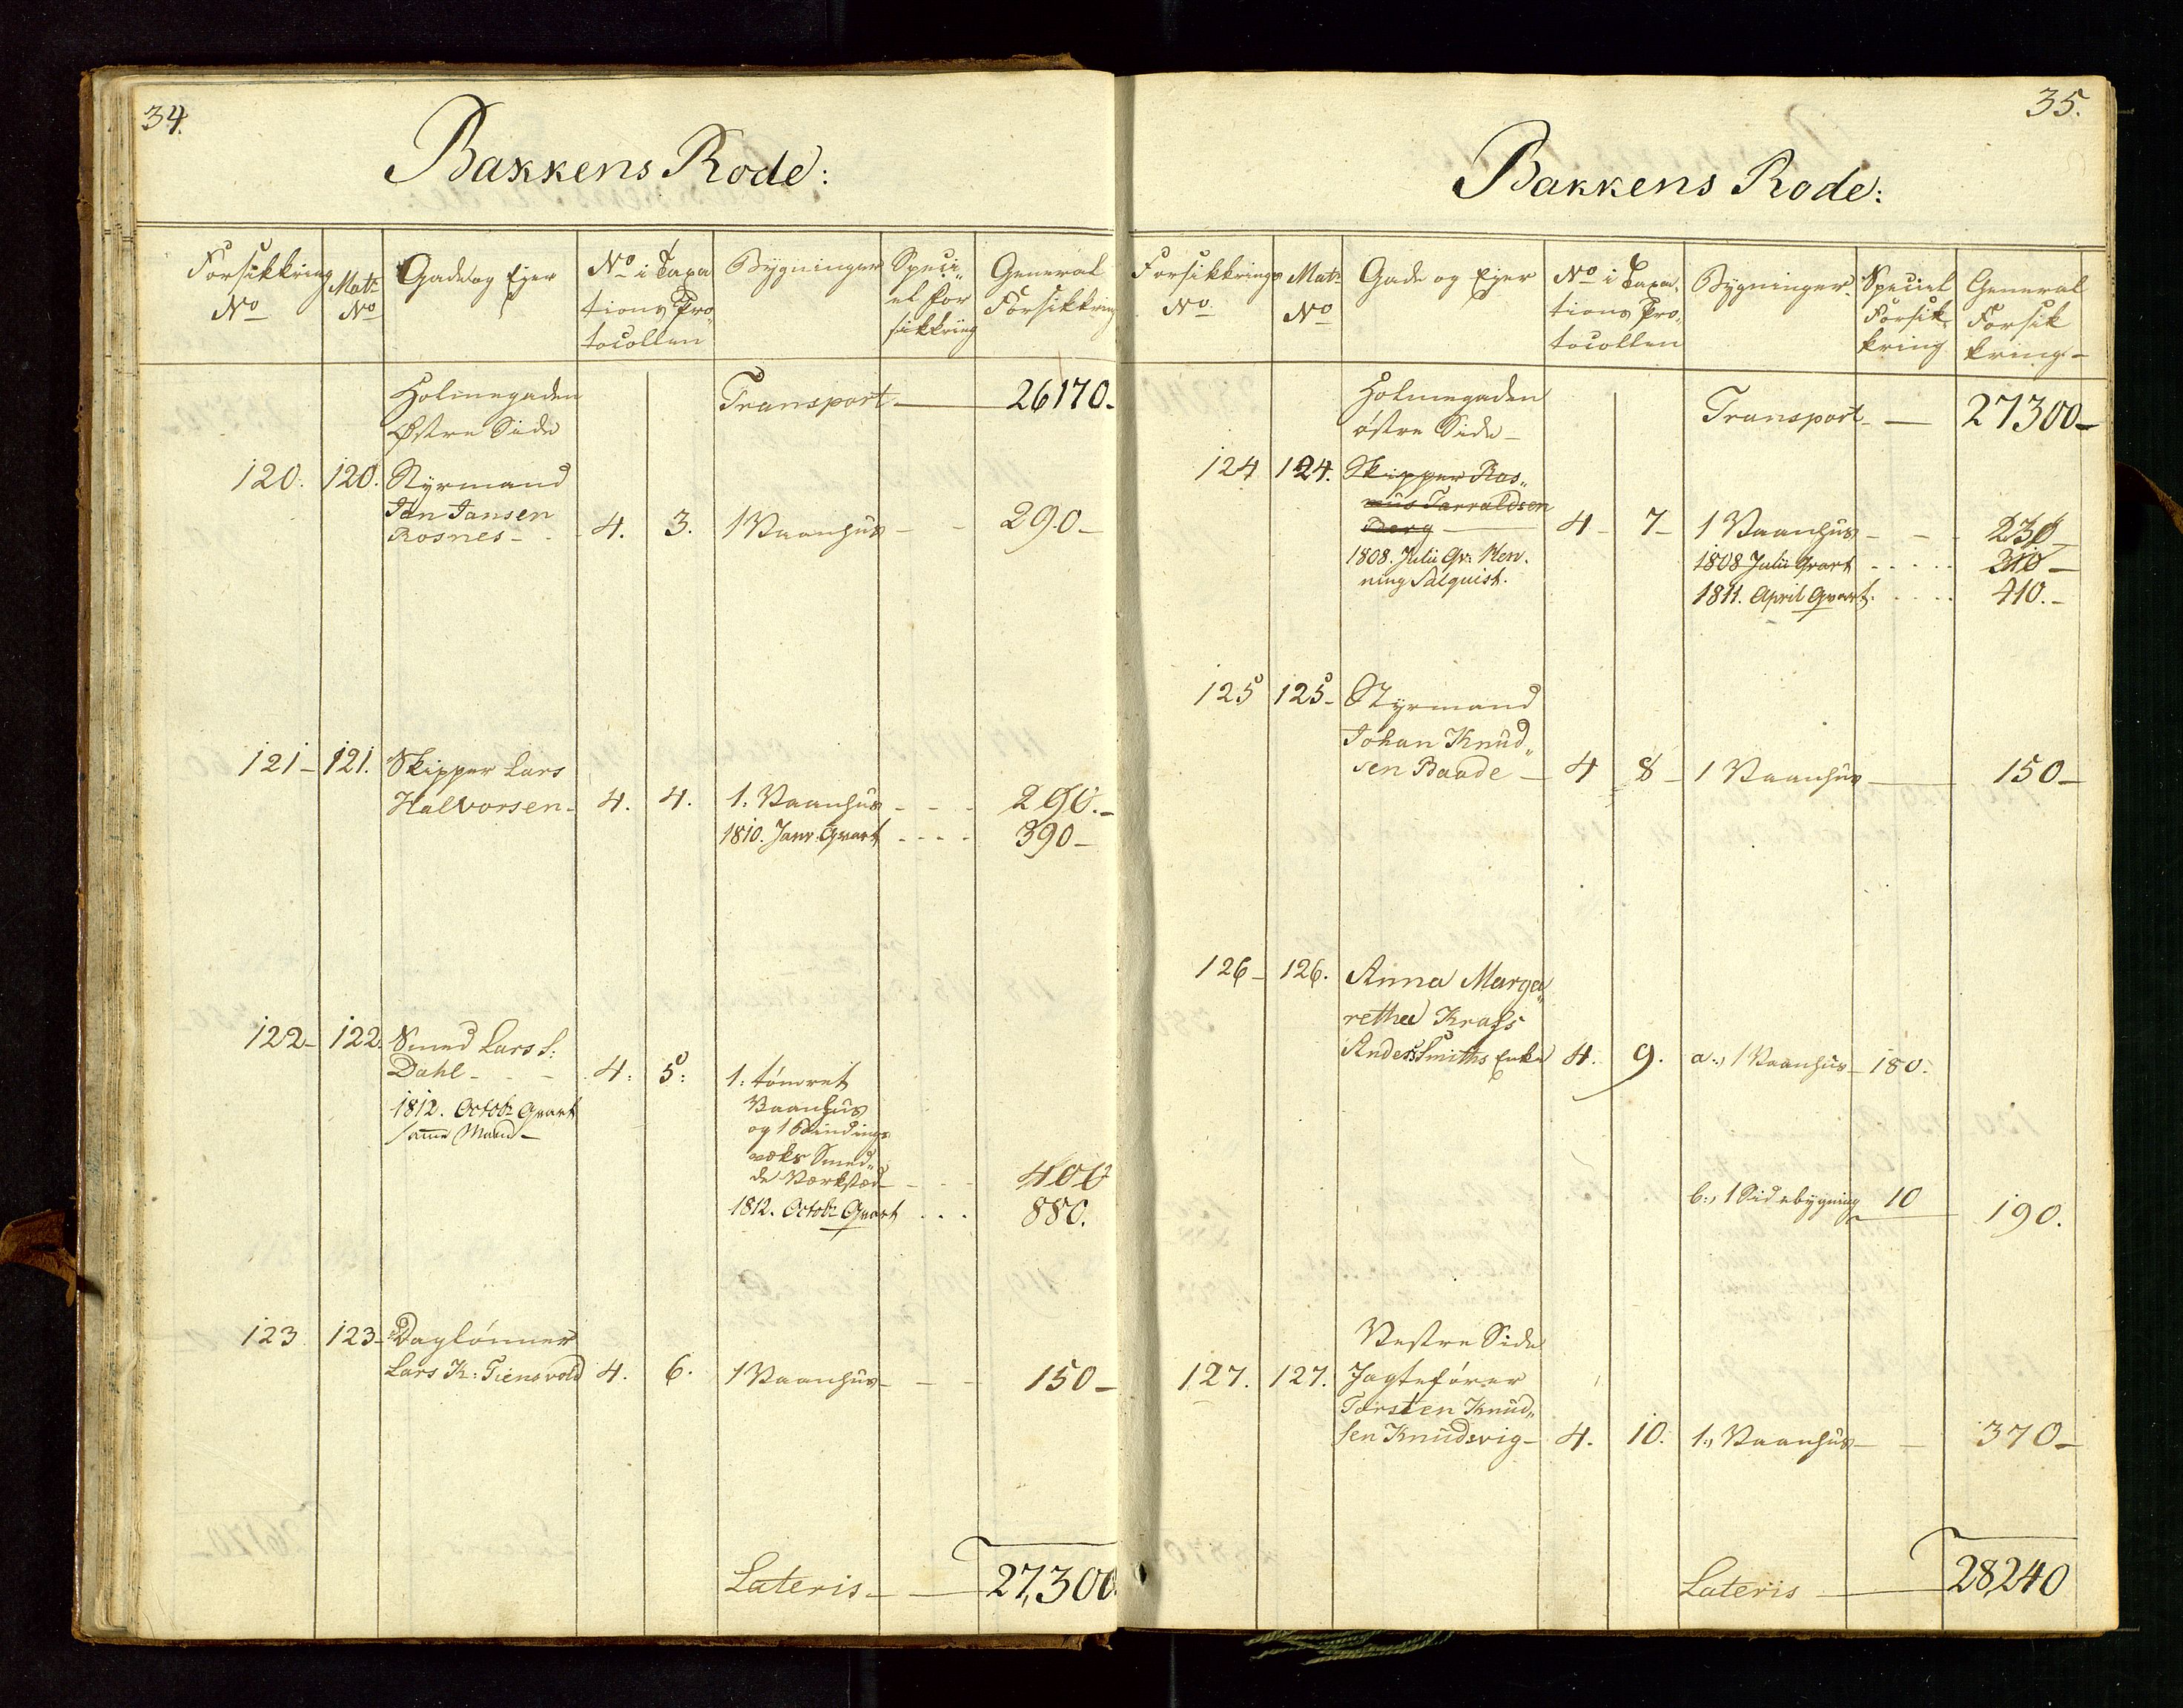 34.
Bakkens Rode:
Forsikkring No
Matr No
Gade og Ejer
No i Taxa
tions Pro„
tocollen
Bygninger
Speci„
el for
sikkring
General
Forsikkring
Holmegaden
Østre Side
Transport — 26170.
120. 120. Styrmand
Jan Jansen
Rosnes - 4. 3. 1 Vaanhus - - 290 -
121 - 121. Skipper Lars
Halvorsen - 4. 4. 1. Vaanhus - - - 290. -
1810. Janr. Qvart - - - - 390 -
122 - 122. Smed Lars S:
Dahl - - - 4: 5: 1: tömret
Vaanhus
1812. Octobr Qvart
samme Mand -
og 1 Bindings
væks Smed„
de Værksted - - - 400
1812. Octobr Qvart . . . 880.
123 123 - Daglönner
Lars K: Tiensvold 4. 6. 1 Vaanhus - - - 150 -
Lateris - — 27,300.
35.
Bakkens Rode:
Forsikkrings No.
Matr No
Gade og Ejer
No i Taxa„
tions Pro„
tocollen
Bygninger.
Speciel
Forsik
kring
General
Forsik
kring -
Holmegaden
østre Side -
Transport - — 27300 -
124 124. Skipper Ras„
mus Tarraldsen
Berg — 4 - 7 - 1 Vaanhus - - - 230 -
1808. Julii Qv: Hen.
ning Salquist.
1808 Julii Qvart . . . . . 310 -
1811. April Qvart. . . . . 410. -
125 125 - Styrmand
Johan Knud„
sen Baade - 4 8 - 1 Vaanhus — 150 -
126 - 126. Anna Marga„
retha Krafs
Anders Smiths Enke 4. 9. a., 1 Vaanhus - 180.
b., 1 Sidebygning 10 — 190.
Vestre Side
127. 127. Jagtefører
Torsten Knud„
sen Knudsvig - 4. 10. 1., Vaanhus - - 370 -
Lateris — 28240